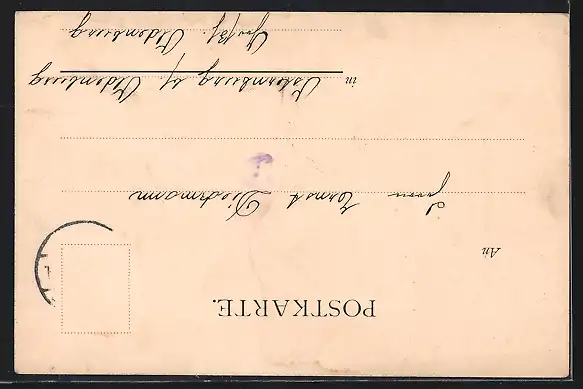 POSTKARTE.
An
Herrn Ernst Diechmann
in Osternburg b/ Oldenburg
Großh. Oldenburg